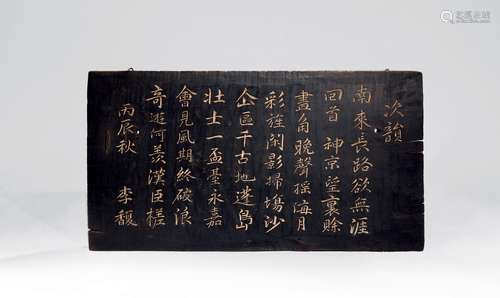 次韻
南來長路欲無涯
回首 神京望裏賒
畫角晚聲搖海月
彩旌閑影掃場沙
區千古地蓬島
壯士一盃臺永嘉
會見風期終破浪
奇遊何羨漢臣槎
丙辰秋 李馥